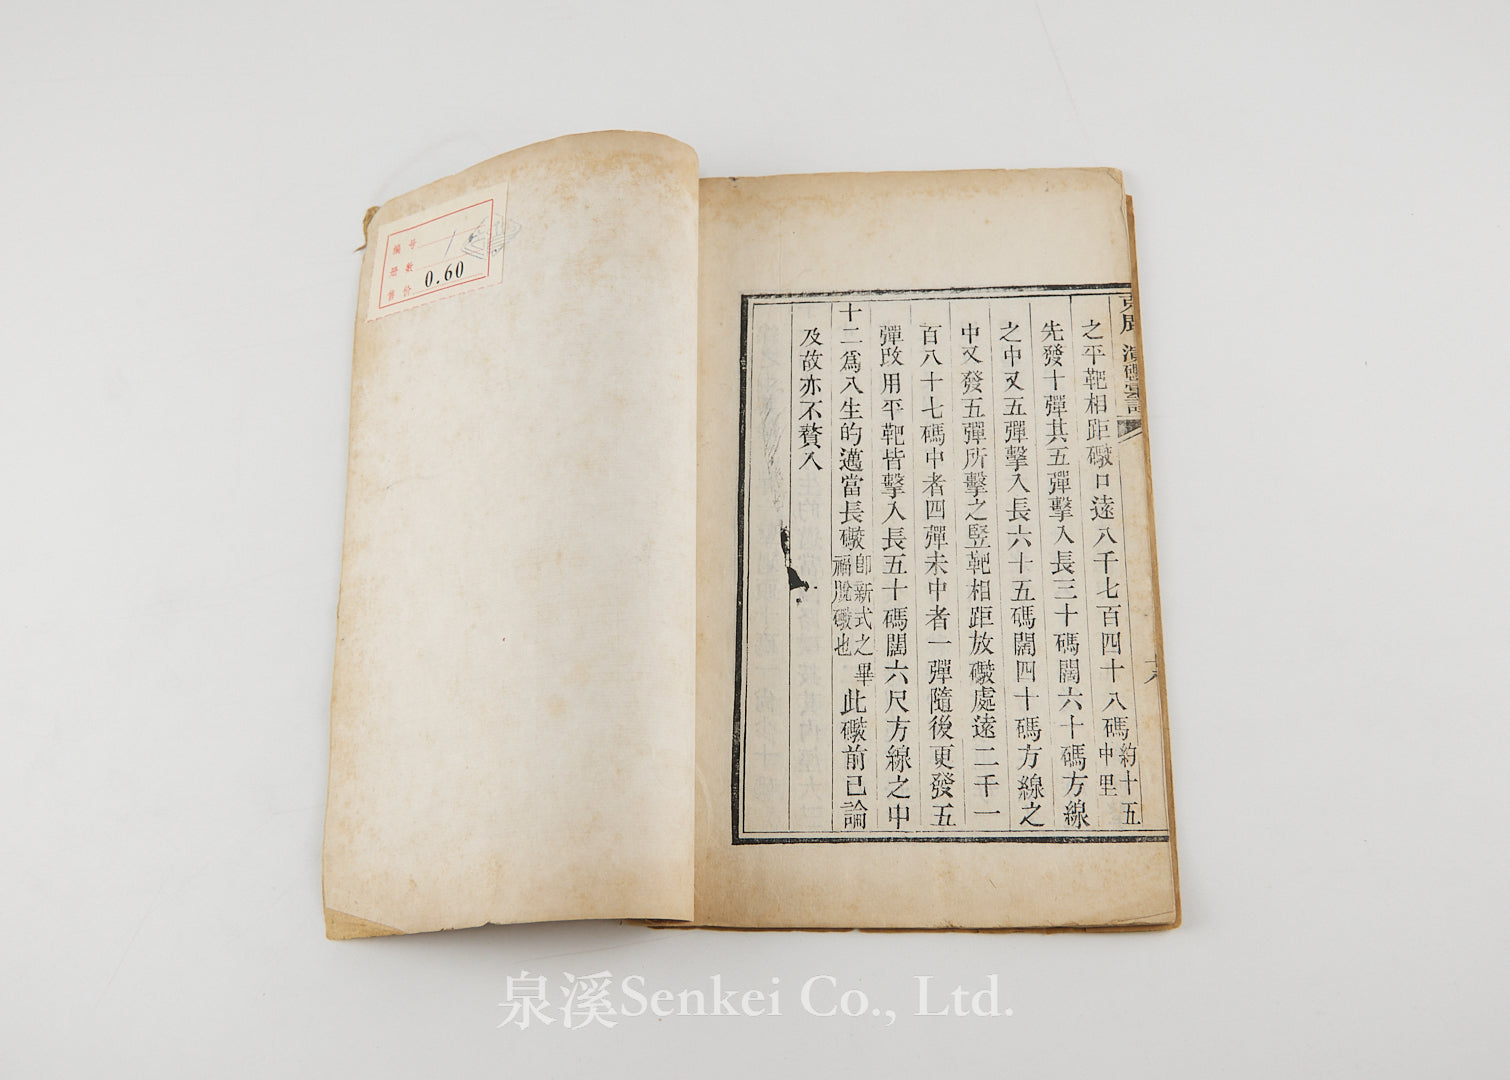 之平靶相距礮口遠八千七百四十八碼約十五中里
先發十彈其五彈擊入長三十碼闊六十碼方線
之中又五彈擊入長六十五碼闊四十碼方線之
中又發五彈所擊之竪靶相距放礮處遠二千一
百八十七碼中者四彈未中者一彈隨後更發五
彈改用平靶皆擊入長五十碼闊六尺方線之中
十二爲八生的邁當長礮卽新式之畢福脫礮也此礮前已論
及故亦不贅入
编号 1
册数
售价 0.60
泉溪Senkei Co., Ltd.